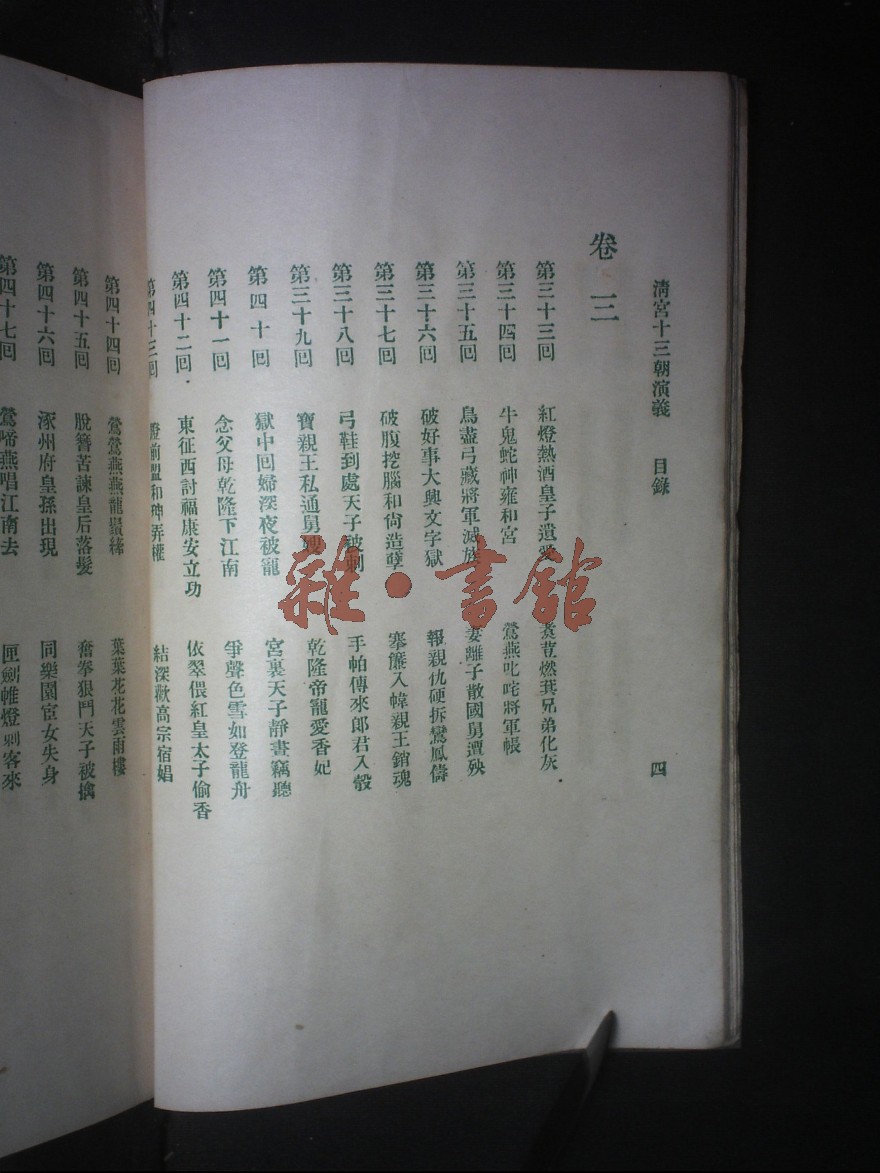 清宮十三朝演義　目錄　四
卷三
第三十三回　紅燈熱酒皇子遺愛　煑荳燃萁兄弟化灰
第三十四回　牛鬼蛇神雍和宮　鶯燕叱咤將軍帳
第三十五回　鳥盡弓藏將軍滅族　妻離子散國舅遭殃
第三十六回　破好事大興文字獄　報親仇硬拆鸞鳳儔
第三十七回　破腹挖腦和尙造孽　搴簾入幃親王銷魂
第三十八回　弓鞋到處天子被刺　手帕傳來郎君入彀
第三十九回　寶親王私通舅嫂　乾隆帝寵愛香妃
第四十回　獄中回婦深夜被寵　宮裏天子靜晝竊聽
第四十一回　念父母乾隆下江南　爭聲色雪如登龍舟
第四十二回　東征西討福康安立功　依翠偎紅皇太子偷香
第四十三回　證前盟和珅弄權　結深歡高宗宿娼
第四十四回　鶯鶯燕燕龍鬚縴　葉葉花花雲雨樓
第四十五回　脫簪苦諫皇后落髮　奮拳狠鬥天子被擒
第四十六回　涿州府皇孫出現　同樂園宦女失身
第四十七回　鶯啼燕唱江南去　匣劍帷燈刺客來
雜·書館